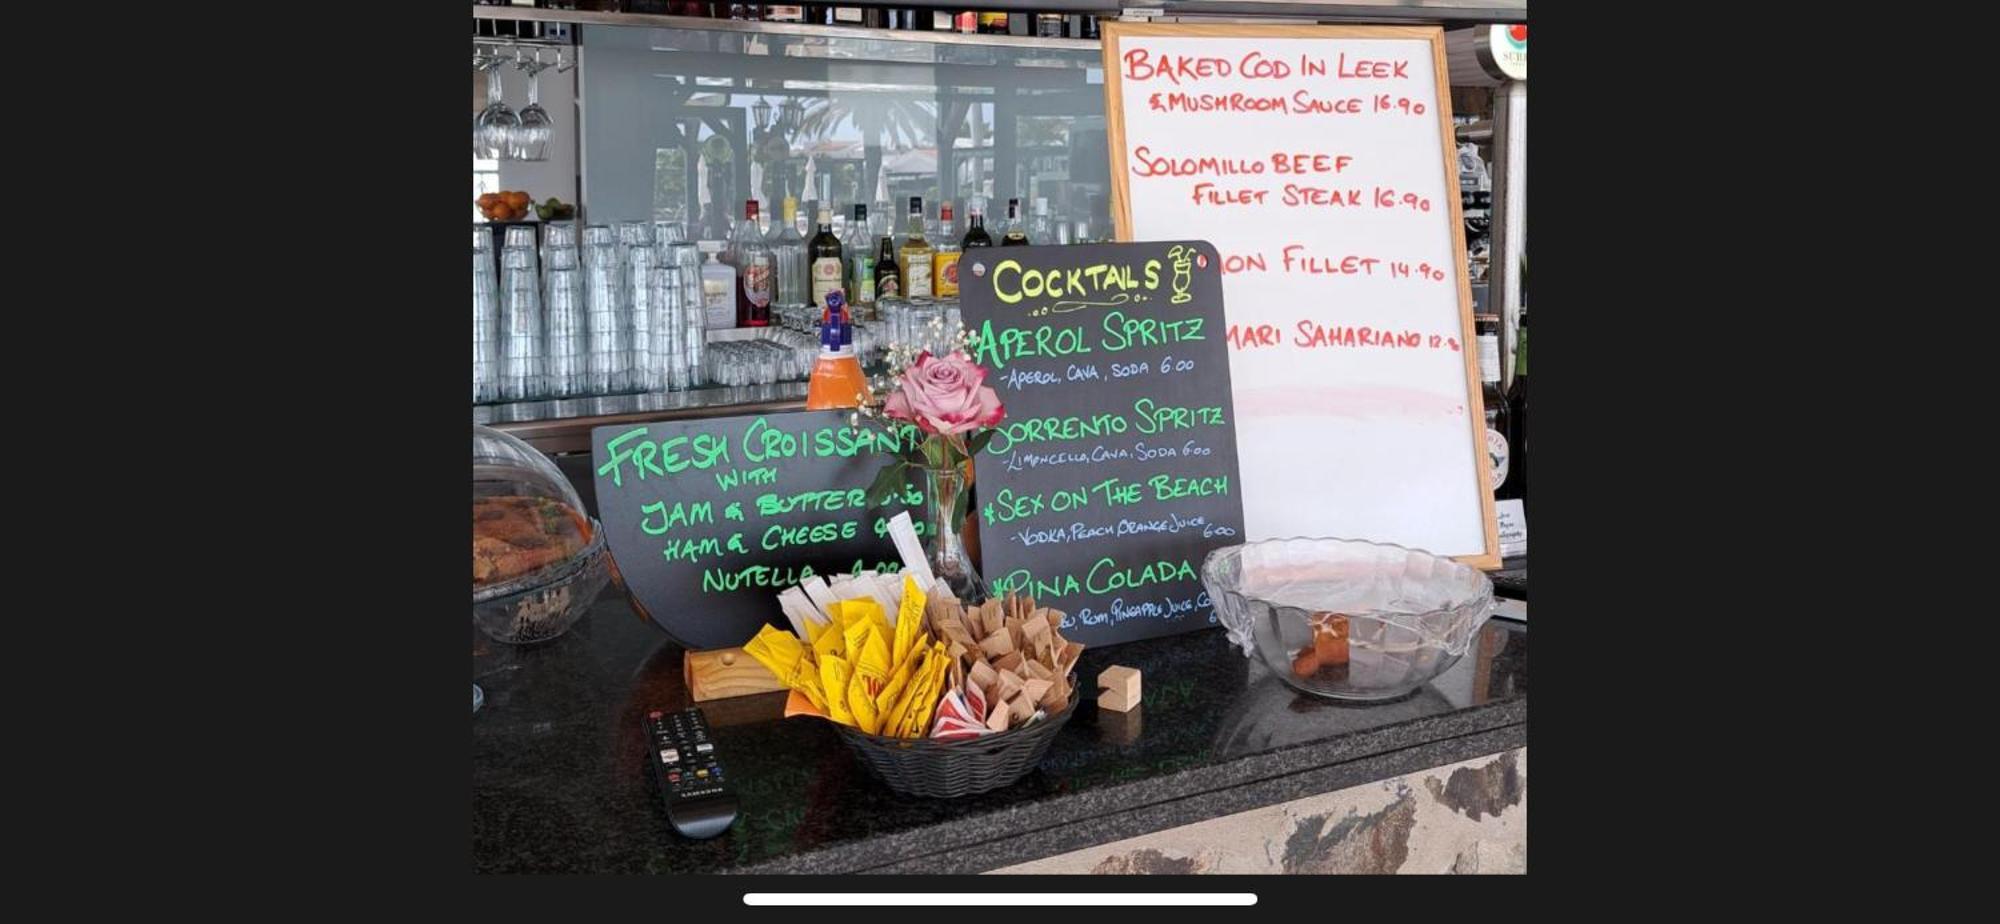 BAKED COD IN LEEK
& MUSHROOM SAUCE 16.90
SOLOMILLO BEEF
FILLET STEAK 16.90
FILLET 14.90
SAHARIANO
COCKTAILS
APEROL SPRITZ
-APEROL, CAVA, SODA 6.00
SORRENTO SPRITZ
-LIMONCELLO, CAVA, SODA 6.00
*SEX ON THE BEACH
-VODKA, PEACH ORANGE JUICE
6.00
*PINA COLADA
RUM, PINEAPPLE JUICE,
FRESH CROISSANT
WITH
JAM & BUTTER
HAM & CHEESE
NUTELLA
SAMSUNG